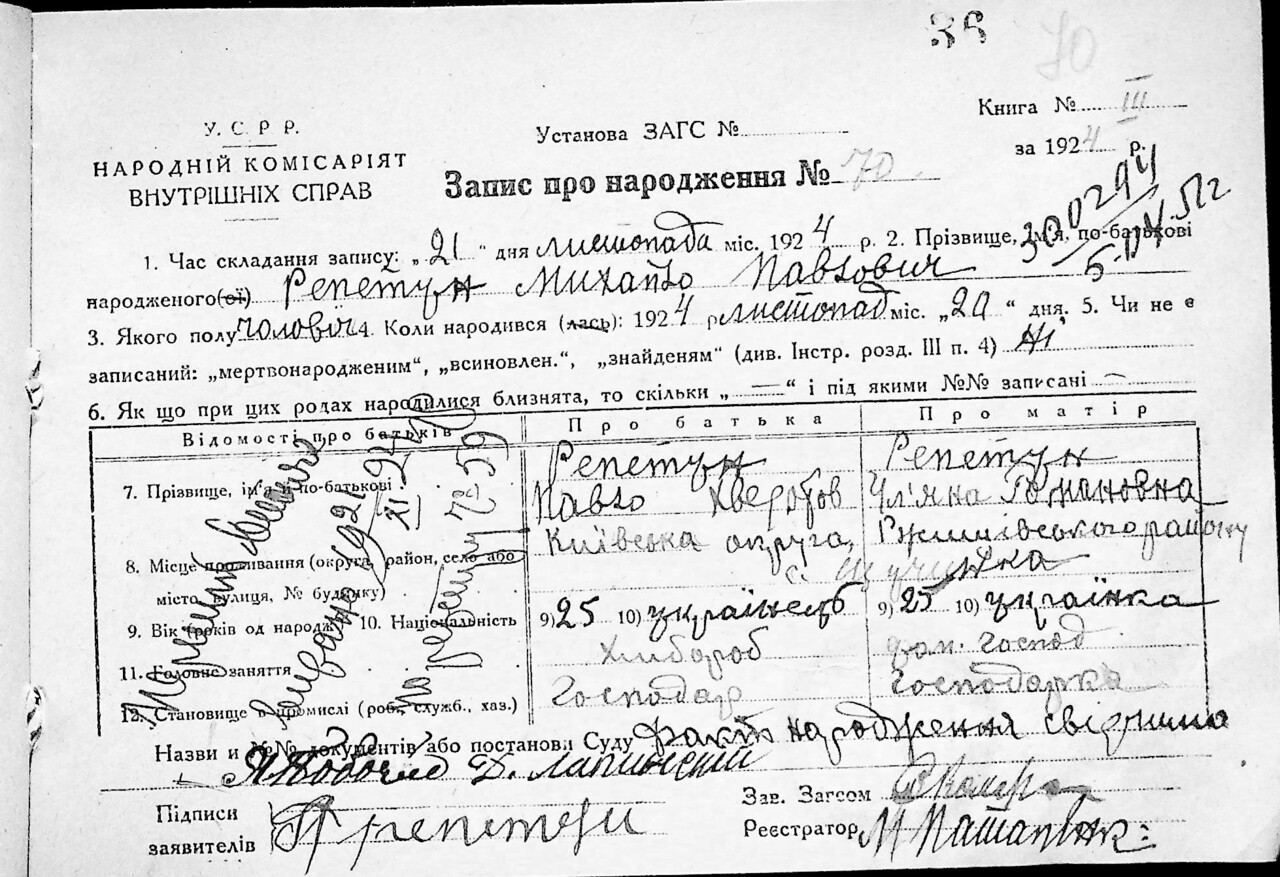 36 70
У. С. Р. Р.
НАРОДНІЙ КОМІСАРІЯТ
ВНУТРІШНІХ СПРАВ
Установа ЗАГС №
Запис про народження № 70
Книга № III
за 1924 р.
300294
5.IV.51г
1. Час складання запису: „21“ дня листопада міс. 1924 р. 2. Прізвище, ім'я, по-батькові
народженого(ої) Репетун Михайло Павлович
3. Якого полу чоловіч 4. Коли народився (лась): 1924 р. листопад міс. „20“ дня. 5. Чи не є
записаний: „мертвонародженим“, „всиновлен.“, „знайденям“ (див. Інстр. розд. III п. 4) Ні
6. Як що при цих родах народилися близнята, то скільки „—“ і під якими №№ записані —
Відомості про батьків Про батька Про матір
7. Прізвище, ім'я й по-батькові Репетун Репетун
Павло Уляна Романовна
8. Місце проживання (округа, район, село або Київська округа, Ржищівського району
місто, вулиця, № будинку) с. Щучинка
9. Вік (років од народж. 10. Національність 9) 25 10) українець 9) 25 10) українка
11. Головне заняття хлібороб дом. господ
12. Становище в промислі (роб., служб., хаз.) Господар Господарка
Назви и №№ документів або постанови Суду факт народження свідчими
Д. Лапинский
Підписи
заявителів П Репетун
Зав. Загсом
Реєстратор М